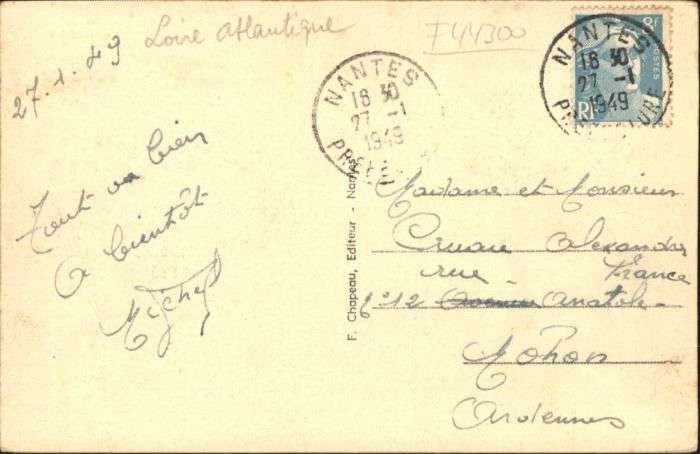 27.1.49
Loire Atlantique
F44300
NANTES
18 30
27 -1
1949
PRÉFE
NANTES
18 30
27 -1
1949
PRÉ URE
8F
POSTES
RF
Tout va bien
A bientôt
Michel
F. Chapeau, Editeur - Nantes
Madame et Monsieur
Cruau Alexandre
rue - France
n° 12 Anatole-
Mohon
Ardennes